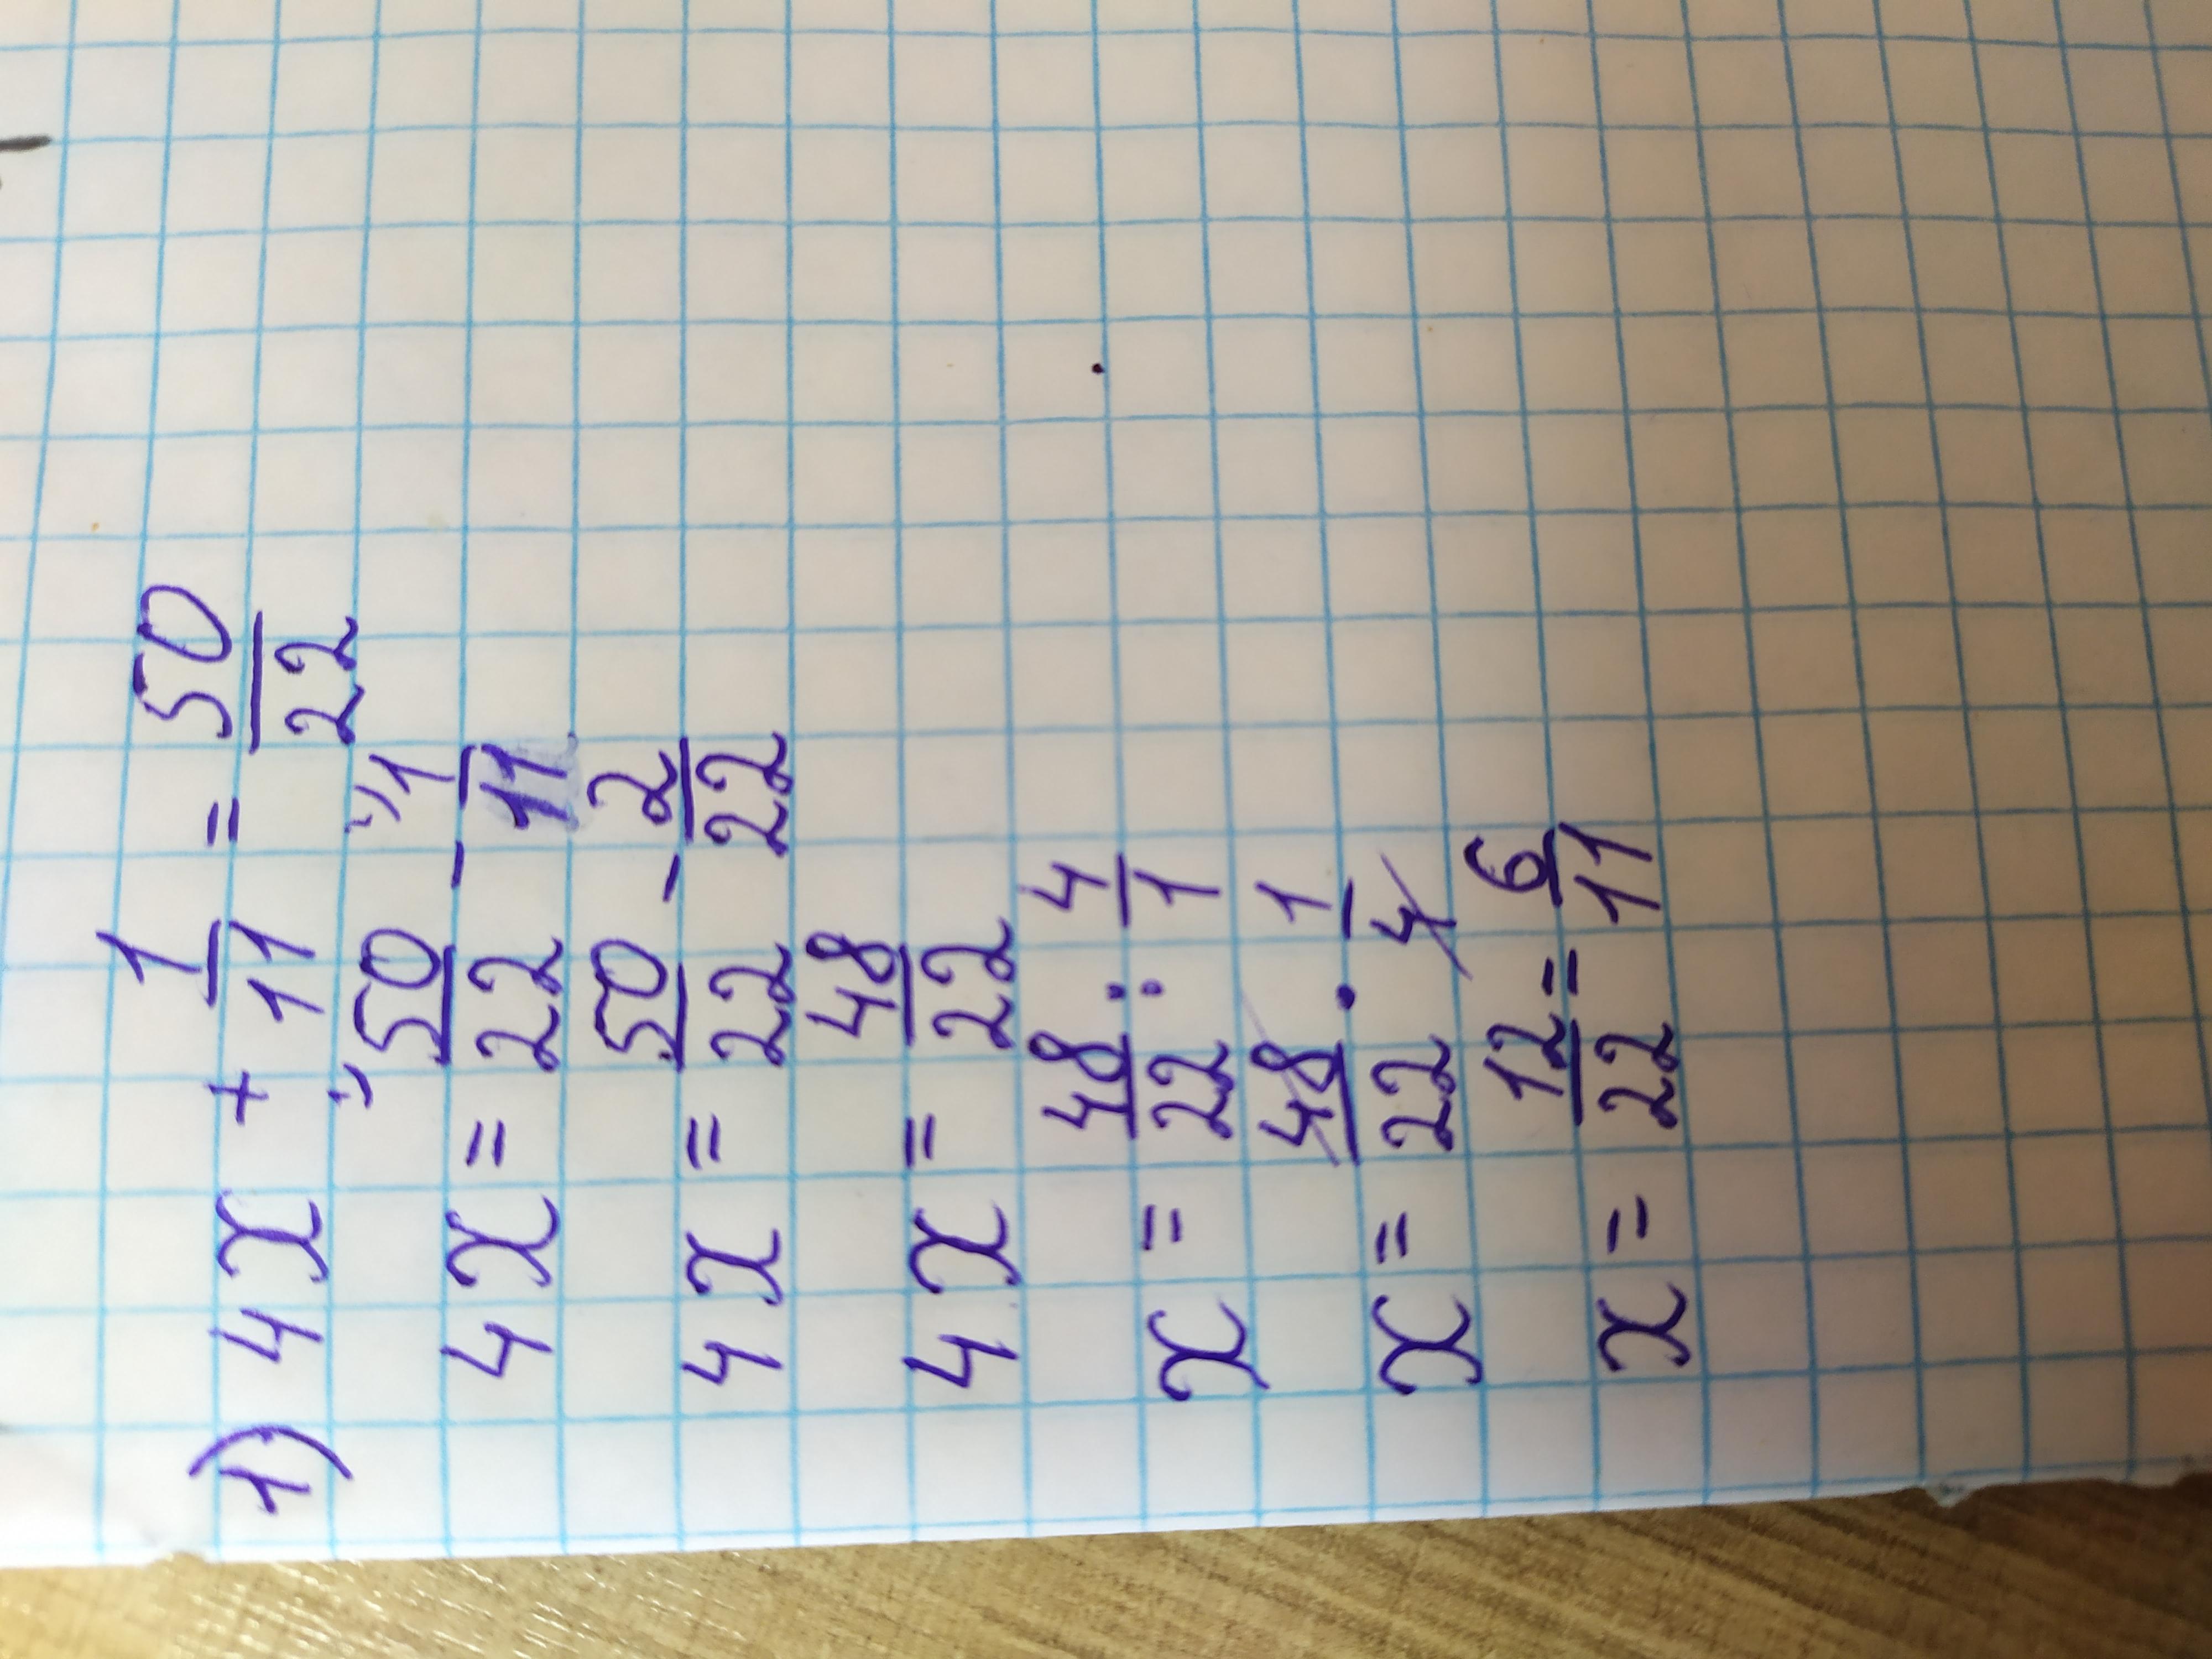 1) 4x + 1/11 = 50/22
4x = 50/22 - 1/11
4x = 50/22 - 2/22
4x = 48/22
x = 48/22 : 4/1
x = 48/22 · 1/4
x = 12/22 = 6/11